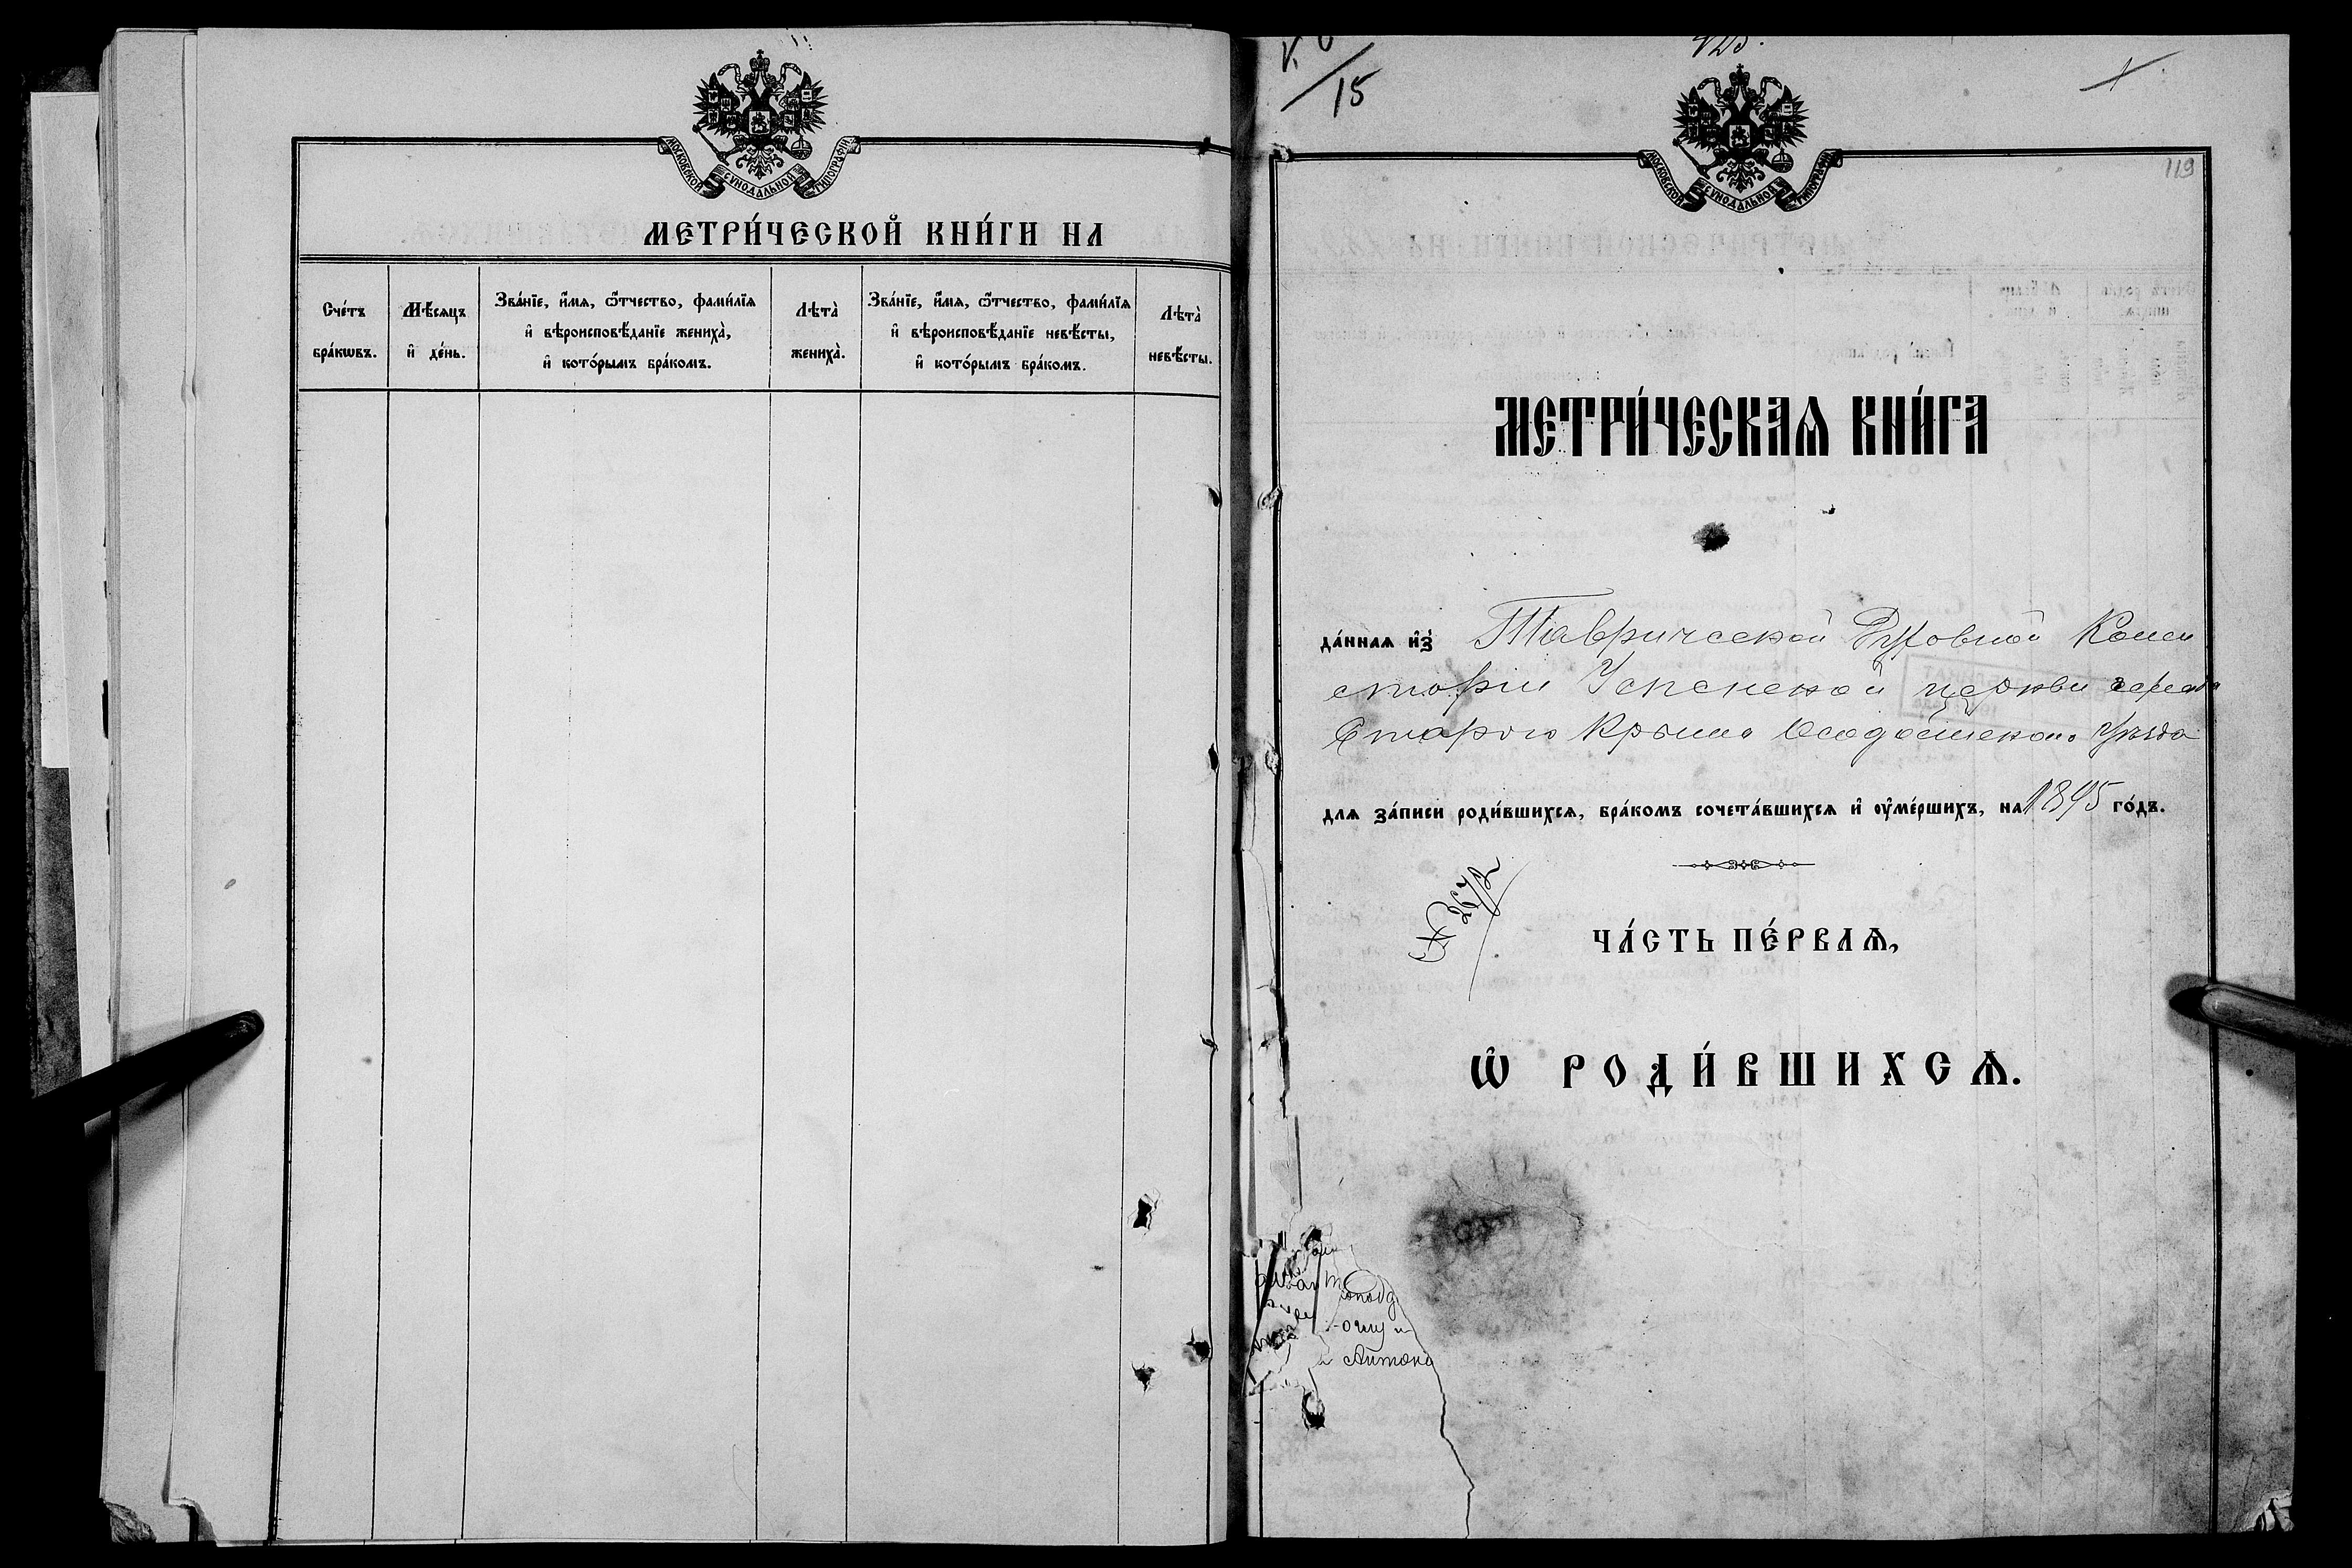 МОСКОВСКОЙ СѴНОДАЛЬНОЙ ТИПОГРАФІИ
МЕТРИ́ЧЕСКОЙ КНИ́ГИ НА
Сче́тъ бра́кѡвъ.
Мѣ́сяцъ и҆ де́нь.
Зва́нїе, и҆́мя, ѻ҆́тчество, фами́лїя
и҆ вѣроисповѣ́данїе жениха̀,
и҆ кото́рымъ бра́комъ.
Лѣта̀ жениха̀.
Зва́нїе, и҆́мя, ѻ҆́тчество, фами́лїя
и҆ вѣроисповѣ́данїе невѣ́сты,
и҆ кото́рымъ бра́комъ.
Лѣта̀ невѣ́сты.
15
119
МОСКОВСКОЙ СѴНОДАЛЬНОЙ ТИПОГРАФІИ
МЕТРИ́ЧЕСКАѦ КНИ́ГА
да́нная и҆з̾ Таврической Духовной Конси
сторіи Успенской церкви города
Старого Крыма Ѳеодосійскаго Уѣзда
для за́писи роди́вшихся, бра́комъ сочета́вшихся и҆ ᲂу҆ме́ршихъ, на 1895 го́дъ.
№ 2672
ЧА́СТЬ ПЕ́РВАѦ,
Ѡ҆ РОДИ́ВШИХСѦ.
Антона